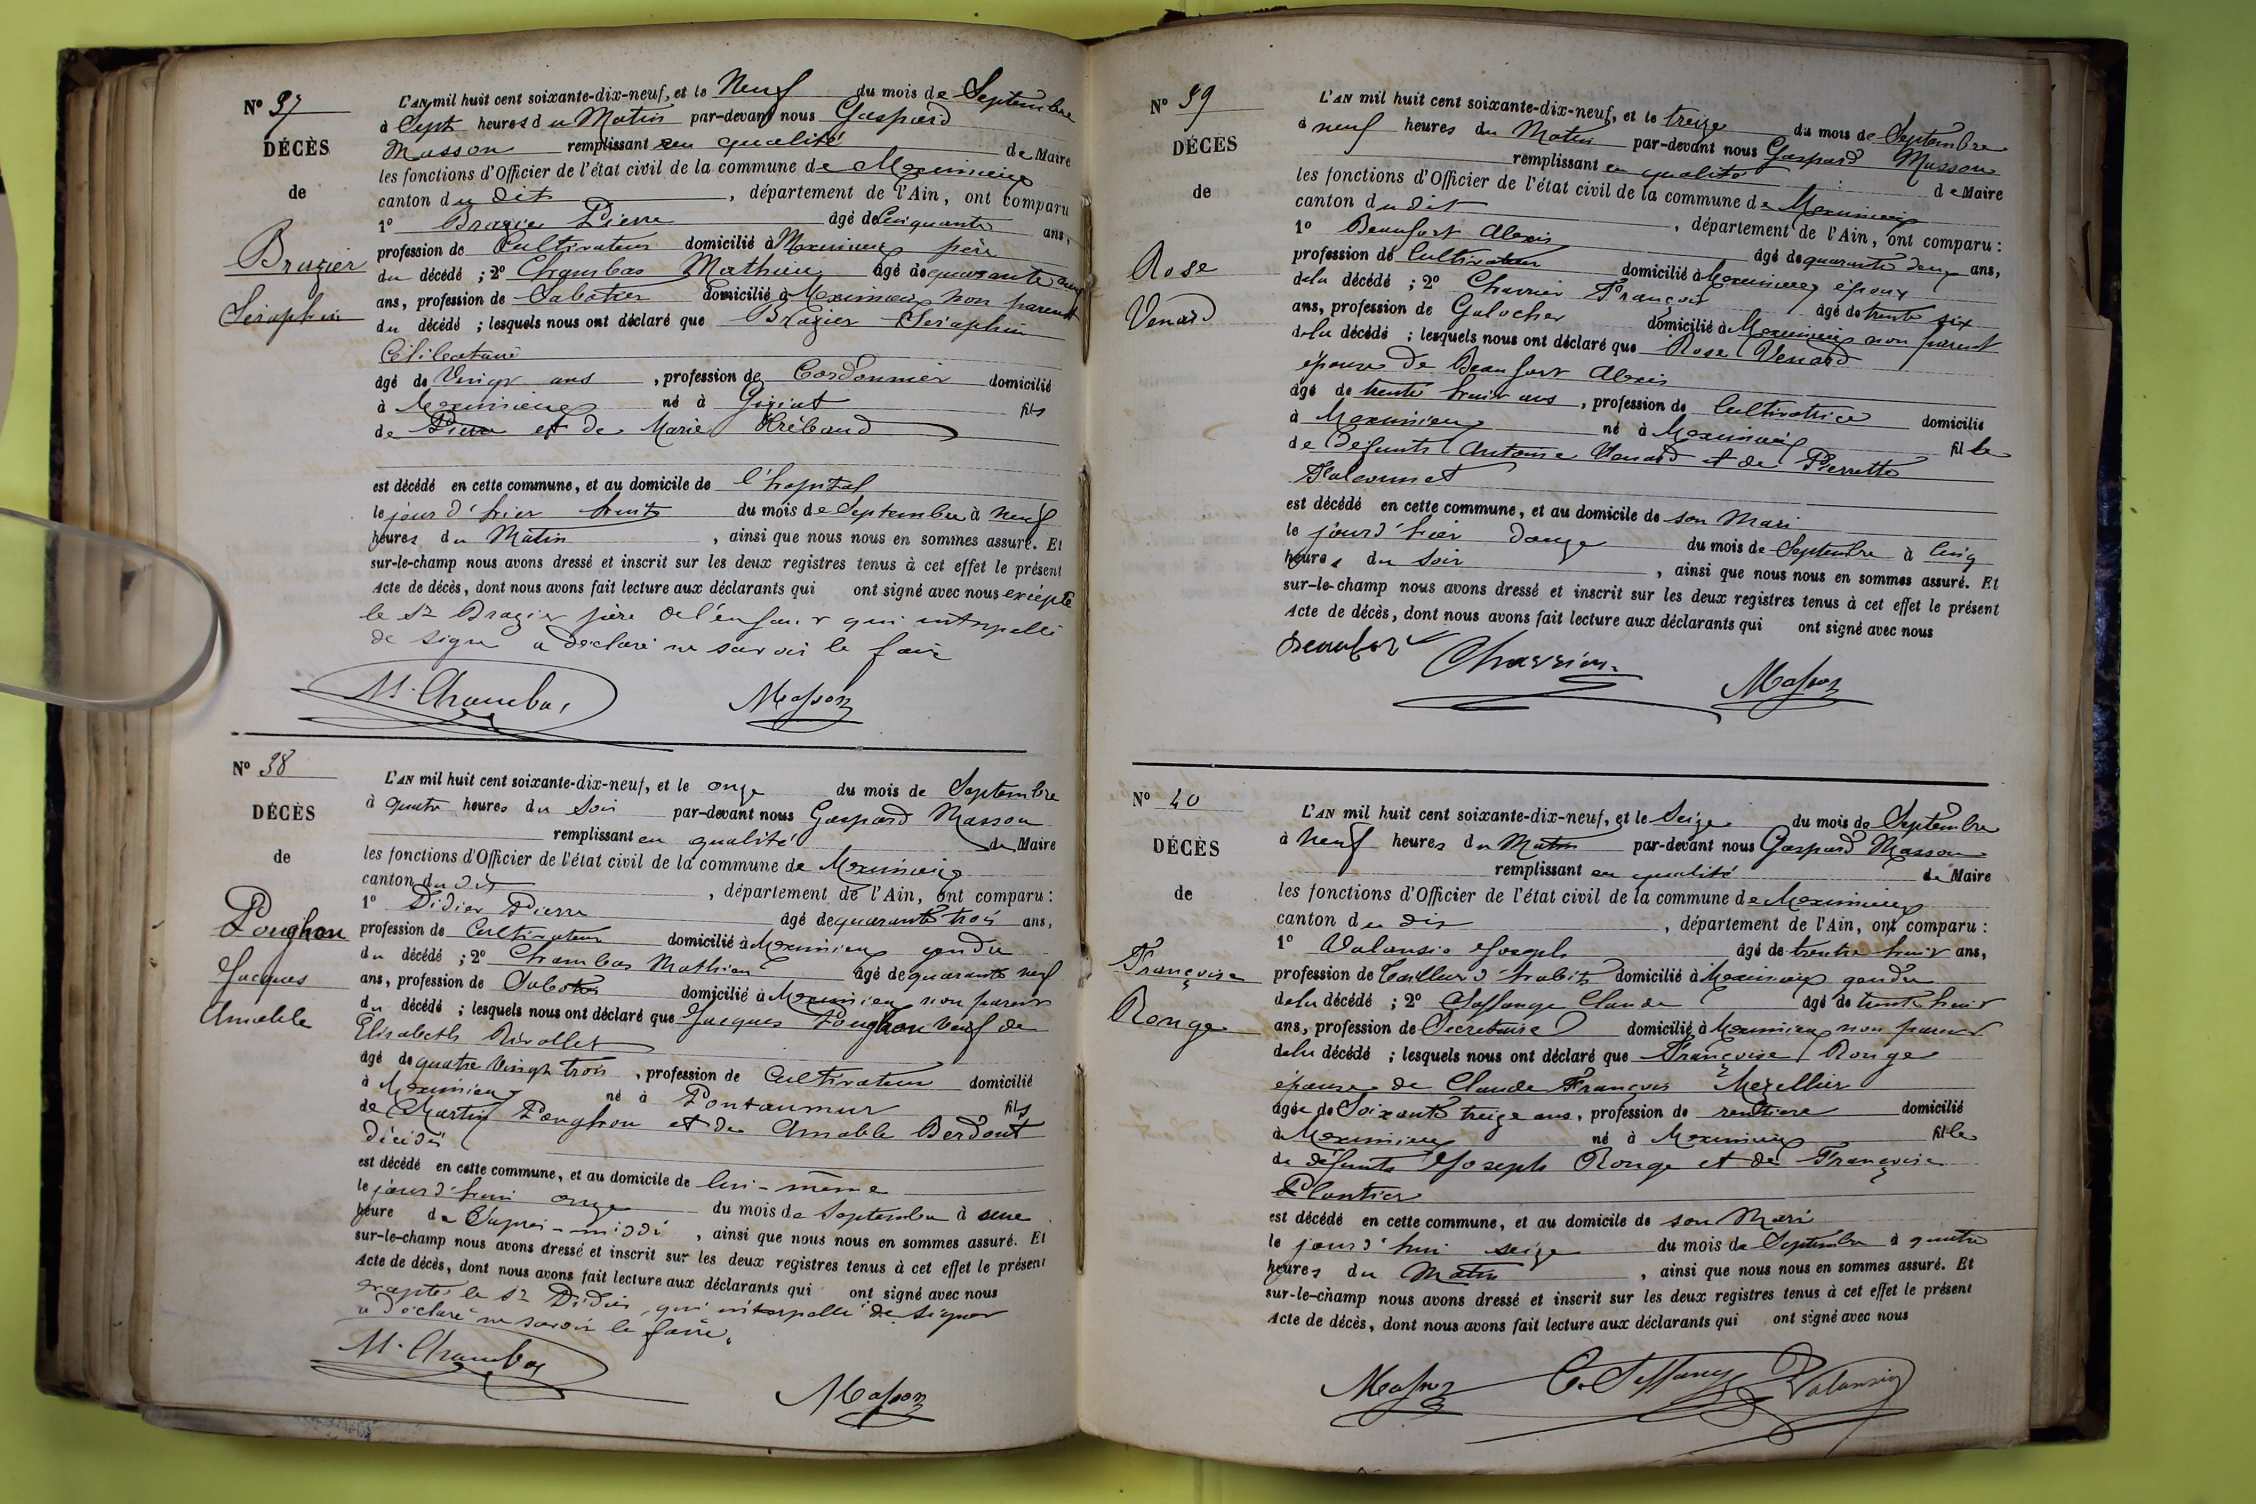 N° 37
DÉCÈS
de
Brazier
Séraphin
L'AN mil huit cent soixante-dix-neuf, et le Neuf du mois de Septembre
à Sept heures du Matin par-devant nous Gaspard
Masson remplissant en qualité de Maire
les fonctions d'Officier de l'état civil de la commune de Meximieux
canton du dit, département de l'Ain, ont comparu
1° Brazier Pierre âgé de Cinquante ans,
profession de Cultivateur domicilié à Meximieux père
du décédé ; 2° Chambas Mathieu âgé de quarante neuf
ans, profession de Sabotier domicilié à Meximieux non parent
du décédé ; lesquels nous ont déclaré que Brazier Séraphin
Célibataire
âgé de Vingt ans, profession de Cordonnier domicilié
à Meximieux né à fils
de Pierre et de Marie Trébaud
est décédé en cette commune, et au domicile de l'hopital
le jour d'hier huit du mois de Septembre à Neuf
heures du Matin, ainsi que nous nous en sommes assuré. Et
sur-le-champ nous avons dressé et inscrit sur les deux registres tenus à cet effet le présent
Acte de décès, dont nous avons fait lecture aux déclarants qui ont signé avec nous excepté
le Sr Brazier père de l'enfant qui interpellé
de signer a déclaré ne savoir le faire
M. Chambas Masson
N° 38
DÉCÈS
de
Poughon
Jacques
Amable
L'AN mil huit cent soixante-dix-neuf, et le onze du mois de Septembre
à quatre heures du Soir par-devant nous Gaspard Masson
remplissant en qualité de Maire
les fonctions d'Officier de l'état civil de la commune de Meximieux
canton du dit, département de l'Ain, ont comparu :
1° Didier Pierre âgé de quarante trois ans,
profession de Cultivateur domicilié à Meximieux gendre
du décédé ; 2° Chambas Mathieu âgé de quarante neuf
ans, profession de Sabotier domicilié à Meximieux non parent
du décédé ; lesquels nous ont déclaré que Jacques Poughon veuf de
Elisabeth Rivollet
âgé de quatre vingt trois, profession de Cultivateur domicilié
à Meximieux né à Pontaumur fils
de Martin Poughon et de Amable Berdout
décédés
est décédé en cette commune, et au domicile de lui-même
le jour d'hui onze du mois de Septembre à une
heure de l'après-middi, ainsi que nous nous en sommes assuré. Et
sur-le-champ nous avons dressé et inscrit sur les deux registres tenus à cet effet le présent
Acte de décès, dont nous avons fait lecture aux déclarants qui ont signé avec nous
excepté le Sr Didier, qui interpellé de signer
a déclaré ne savoir le faire.
M. Chambas Masson
N° 39
DÉCÈS
de
Rose
Venard
L'AN mil huit cent soixante-dix-neuf, et le treize du mois de Septembre
à neuf heures du Matin par-devant nous Gaspard Masson
remplissant en qualité de Maire
les fonctions d'Officier de l'état civil de la commune de Meximieux
canton du dit, département de l'Ain, ont comparu :
1° Beaufort Alexis âgé de quarante deux ans,
profession de Cultivateur domicilié à Meximieux époux
de la décédé ; 2° Charrier François âgé de trente six
ans, profession de Galocher domicilié à Meximieux non parent
de la décédé ; lesquels nous ont déclaré que Rose Venard
épouse de Beaufort Alexis
âgé de trente huit ans, profession de Cultivatrice domicilié
à Meximieux né à Meximieux fille
de défunts Antoine Venard et de Pierrette
Falconnet
est décédé en cette commune, et au domicile de son Mari
le jour d'hier douze du mois de Septembre à Cinq
heures du Soir, ainsi que nous nous en sommes assuré. Et
sur-le-champ nous avons dressé et inscrit sur les deux registres tenus à cet effet le présent
Acte de décès, dont nous avons fait lecture aux déclarants qui ont signé avec nous
Beaufort Charrier Masson
N° 40
DÉCÈS
de
Françoise
Rouge
L'AN mil huit cent soixante-dix-neuf, et le Seize du mois de Septembre
à Neuf heures du Matin par-devant nous Gaspard Masson
remplissant en qualité de Maire
les fonctions d'Officier de l'état civil de la commune de Meximieux
canton du dit, département de l'Ain, ont comparu :
1° Valansio Joseph âgé de trente huit ans,
profession de Tailleur d'habits domicilié à Meximieux gendre
de la décédé ; 2° Claude âgé de trente huit
ans, profession de Secretaire domicilié à Meximieux non parent
de la décédé ; lesquels nous ont déclaré que Françoise Rouge
épouse de Claude François Mezellier
âgée de Soixante treize ans, profession de rentiere domicilié
à Meximieux né à Meximieux fille
de défunts Joseph Rouge et de Françoise
Plantier
est décédé en cette commune, et au domicile de son Mari
le jour d'hui seize du mois de Septembre à quatre
heures du Matin, ainsi que nous nous en sommes assuré. Et
sur-le-champ nous avons dressé et inscrit sur les deux registres tenus à cet effet le présent
Acte de décès, dont nous avons fait lecture aux déclarants qui ont signé avec nous
Masson Valansio